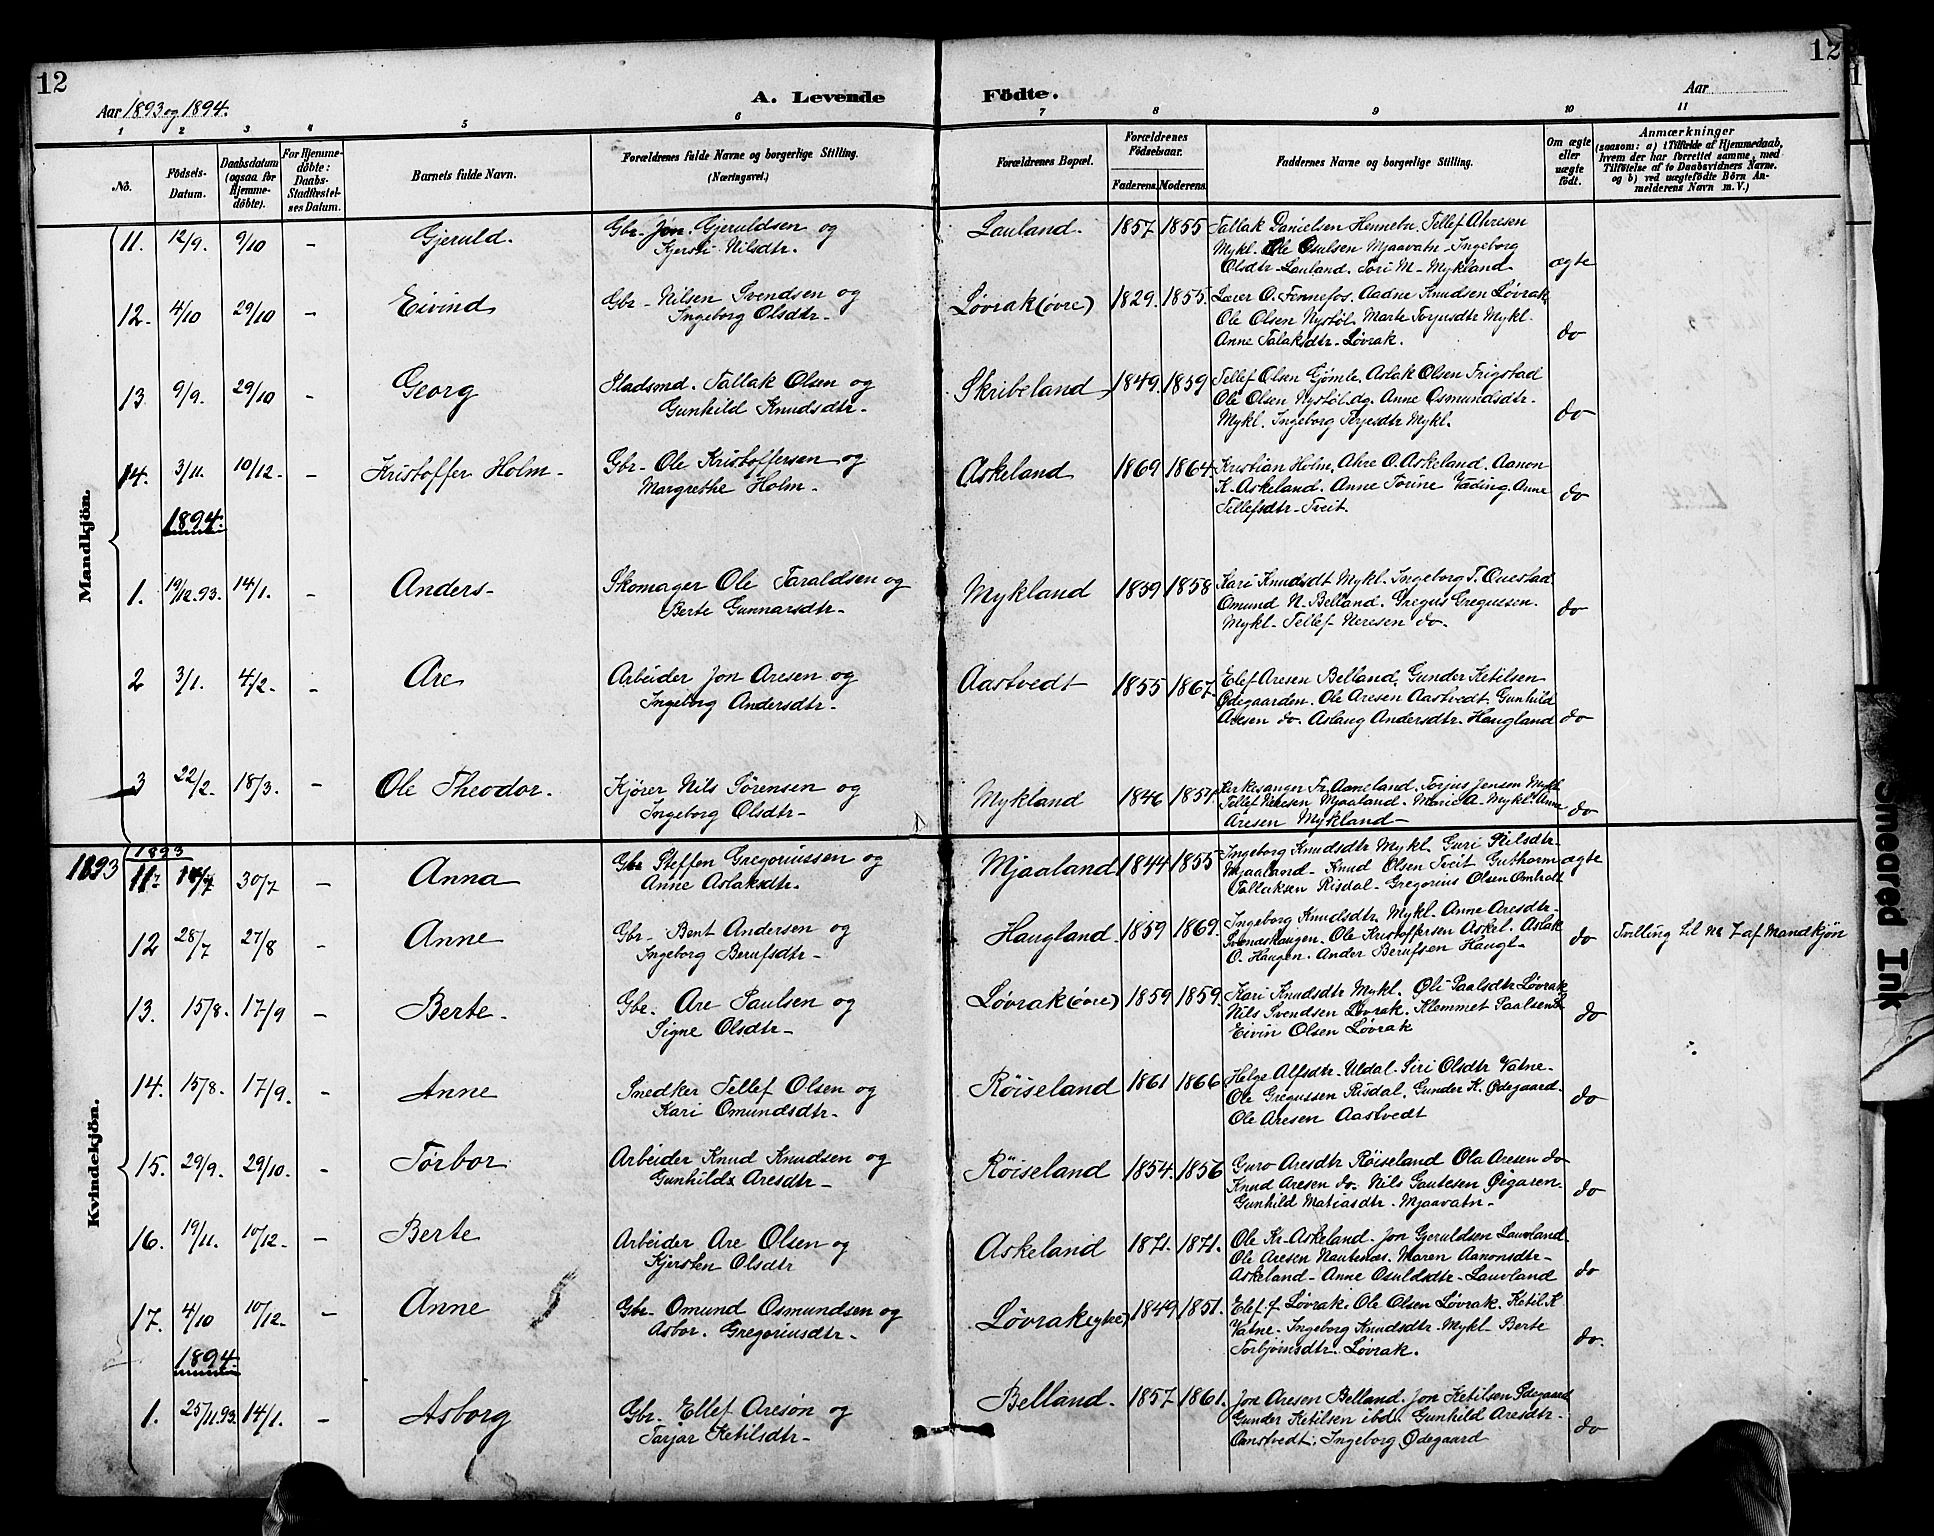 12
12
Aar 1893 og 1894.
A. Levende Fødte.
Aar
1 2 3 4 5 6 7 8 9 10 11
No.
Fødsels-Datum.
Daabsdatum (ogsaa for Hjemme-døbte).
For Hjemme-døbte: Daabs-Stadfæstel-ses Datum.
Barnets fulde Navn.
Forældrenes fulde Navne og borgerlige Stilling. (Næringsvei.)
Forældrenes Bopæl.
Forældrenes Fødselsaar.
Faderens. Moderens.
Faddernes Navne og borgerlige Stilling.
Om ægte eller uægte født.
Anmærkninger
(saasom: a) i Tilfælde af Hjemmedaab, hvem der har forrettet samme, med Tilføielse af to Daabsvidners Navne. og b) ved uægtefødte Børn An-melderens Navn m. V.)
Mandkjøn.
11. 12/9. 9/10 – Gjeruld. Gbr. Jon Gjeruldsen og Lauland. 1857 1855 Tallak Danielsen Hennebu, Tellef Ahresen
Kjersti Nilsdtr. Mykl. Ole Osulsen Mjaavatn. Ingeborg
Olsdtr. Lauland. Tori M. Mykland. ægte
12. 4/10 29/10 – Eivind Gbr. Nilsen Svendsen og Løvrak (øvre) 1829. 1855. Lærer O. Fennefos. Aadne Knudsen Løvrak
Ingeborg Olsdtr. Ole Olsen Nystøl. Marte Terjusdtr Mykl.
Anne Talaksdtr. Løvrak. do
13. 9/9. 29/10 – Georg Pladsmd. Tallak Olsen og Skribeland 1849. 1859 Tellef Olsen Gjømle. Aslak Olsen Frigstad
Gunhild Knudsdtr. Ole Olsen Nystøl. dg. Anne Osmundsdtr.
Mykl. Ingeborg Terjesdtr Mykl. do
14. 3/11. 10/12. – Kristoffer Holm. Gbr. Ole Kristoffersen og Askeland 1869 1864. Kristian Holm. Ahre O. Askeland. Aanon
Margrethe Holm. K. Askeland. Anne Torine Væding. Anne
Tellefsdtr. Tveit. do
1894.
1. 19/12.93. 14/1. – Anders. Skomager Ole Taraldsen og Mykland 1859 1858 Kari Knudsdt Mykl. Ingeborg T. Ouestad
Berte Gunnarsdtr. Omund N. Belland. Gregus Gregussen.
Mykl. Tellef Neresen do. do
2 3/1. 4/2. – Are Arbeider Jon Aresen og Aastvedt 1855 1867. Elef Aresen Belland, Gunder Ketilsen
Ingeborg Andersdtr. Ødegaarden. Ole Aresen Aastvedt. Gunhild
Aresen do. Aslaug Andersdtr. Haugland do
3 22/2. 18/3. – Ole Theodor. Kjører Nils Sørensen og Mykland 1846 1854. Kirkesanger Fr. Aaneland. Torjus Jensen Mykl.
Ingeborg Olsdtr. Tellef Neresen Mjaaland. Marie A. Mykl. Anne
Aresen Mykland do
Kvindekjøn.
1893
1893
11. 14/7 30/7 – Anna Gbr Steffen Gregoriussen og Mjaaland 1844 1855 Ingeborg Knudsdtr Mykl. Guri Nilsdtr.
Anne Aslaksdtr. Mjaaland. Knud Olsen Tveit Guthorm ægte
Tallaksen Risdal. Gregorius Olsen Omholt
12 28/7 27/8 – Anne Gbr. Bent Andersen og Haugland. 1859 1869. Ingeborg Knudsdtr. Mykl. Anne Aresdtr.
Ingeborg Berufsdtr. Svendshaugen. Ole Kristoffersen Askel. Aslak
O. Haugen. Ander Berufsen Haugl. do Tvilling til No 7 af Mandkjøn
13. 15/8. 17/9 – Berte. Gbr. Are Paulsen og Løvrak (øvre) 1859 1859. Kari Knudsdtr Mykl. Oli Paalsdtr Løvrak
Signe Olsdtr. Nils Svendsen Løvrak. Klemmet Paalsen
Eivin Olsen Løvrak do
14. 15/8. 17/9. – Anne Snedker Tellef Olsen og Røiseland 1861 1866 Helge Alfsdtr. Uldal. Siri Olsdtr Vatne.
Kari Omundsdtr. Ole Gregussen Risdal. Gunder K. Ødegaard.
Ole Aresen Aastvedt do
15. 29/9. 29/10. – Torbor Arbeider Knud Knudsen og Røiseland 1854. 1856 Guro Aresdtr Røiseland Ola Aresen do
Gunhild Aresdtr. Knud Aresen do. Nils Gautesen Øigaren.
Gunhild Matiasdtr. Mjaavatn. do
16. 19/11. 10/12. – Berte Arbeider Are Olsen og Askeland 1871. 1871. Ole Kr. Askeland. Jon Gjeruldsen Lauvland
Kjersten Olsdtr Ole Aresen Nautenes. Maren Aanonsdtr.
Askeland. Anne Osuldsdtr. Lauvland do
17. 4/10 10/12. – Anne Gbr. Omund Osmundsen og Løvrak (ytre) 1849 1851. Elef J. Løvrak. Ole Olsen Løvrak. Ketil K
Asbor. Gregoriusdtr. Vatne. Ingeborg Knudsdtr. Mykl. Berte
Torbjørnsdtr. Løvrak. do.
1894.
1. 25/11.93. 14/1. – Asborg Gbr. Ellef Aresøn og Belland. 1857 1861. Jon Aresen Belland. Jon Ketilsen Ødegaard
Tarjar Ketilsdtr. Gunder Ketilsen ibd. Gunhild Aresdtr.
Oanstvedt. Ingeborg Ødegaard do
Smeared Ink